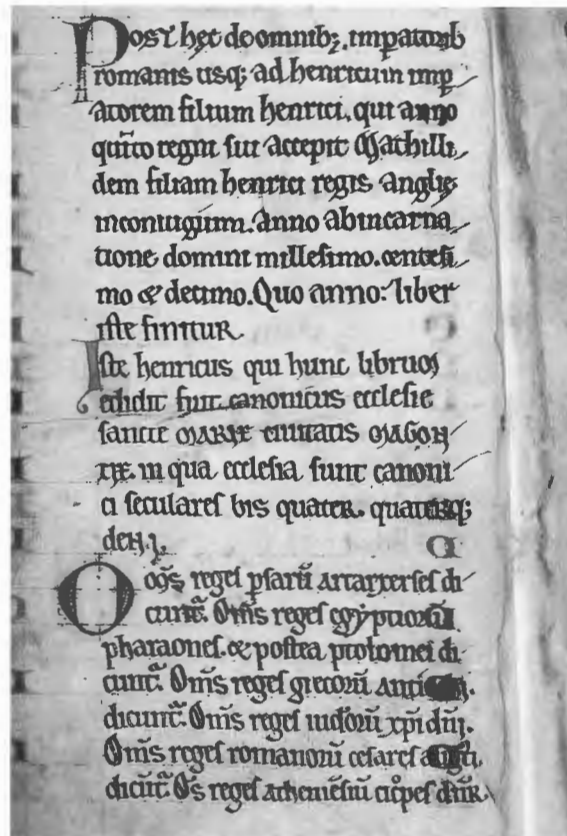 Post hec de omnibꝫ. imꝑatorib
romanis usqꝫ ad henricum imp
atorem filium henrici. qui anno
quīto regni sui accepit Mathilli
dem filiam henrici regis anglię
inconiugium. Anno abincarna
tione domini millesimo. centesi
mo & decimo. Quo anno: liber
iste finitur
Iste henricus qui hunc librum
edidit fuit canonicus ecclesie
sancte MARIE ciuitatis MAGON
TIE. in qua ecclesia sunt canoni
ci seculares bis quater. quaterqꝫ
deni.
reges ꝑsarū Artarxerses di
cunt᷑. Om̄s reges egyptiorū
pharaones. & postea ptolomei di
cunt᷑. Om̄s reges grecorū
dicunt᷑. Om̄s reges iudorū xp̄i
Om̄s reges romanorū cesares
dicūt᷑. Os̄ reges atheniēsiū